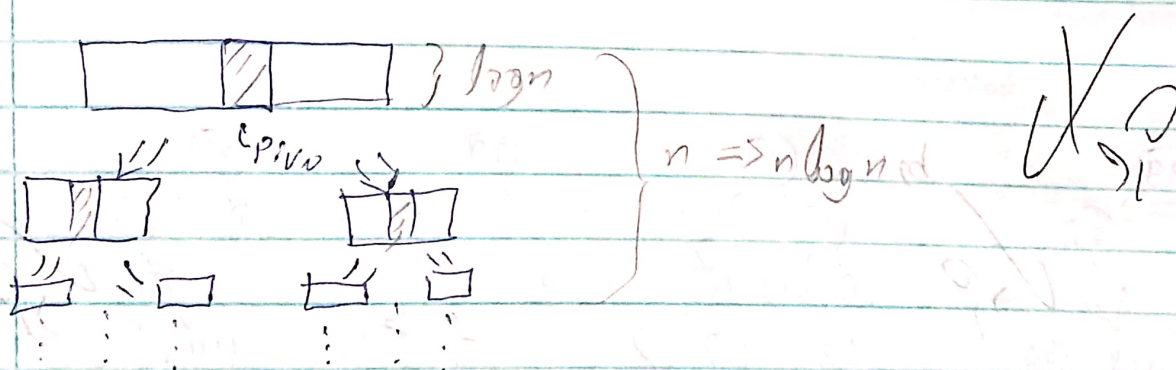 } logn
pivo
n => nlogn